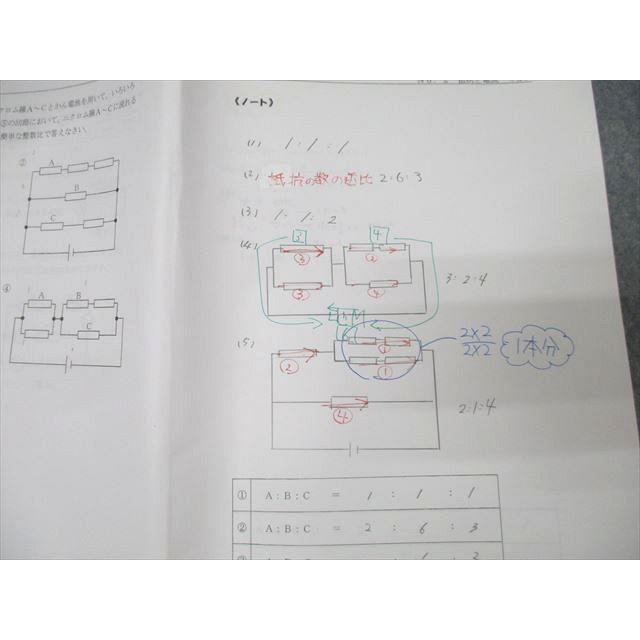 クロム線A〜Cとかん電池を用いて、いろいろ
③の回路において、ニクロム線A〜Cに流れる
簡単な整数比で答えなさい。
②
A
B
C
④
A B
C
《ノート》
(1) 1:1:1
(2) 抵抗の数の逆比 2:6:3
(3) 1:1:2
(4) 3 4
③ ②
③ ④
3:2:4
(5)
② ① ①
④
2×2
2×2
1本分
2:1:4
① A:B:C = 1 : 1 : 1
② A:B:C = 2 : 6 : 3